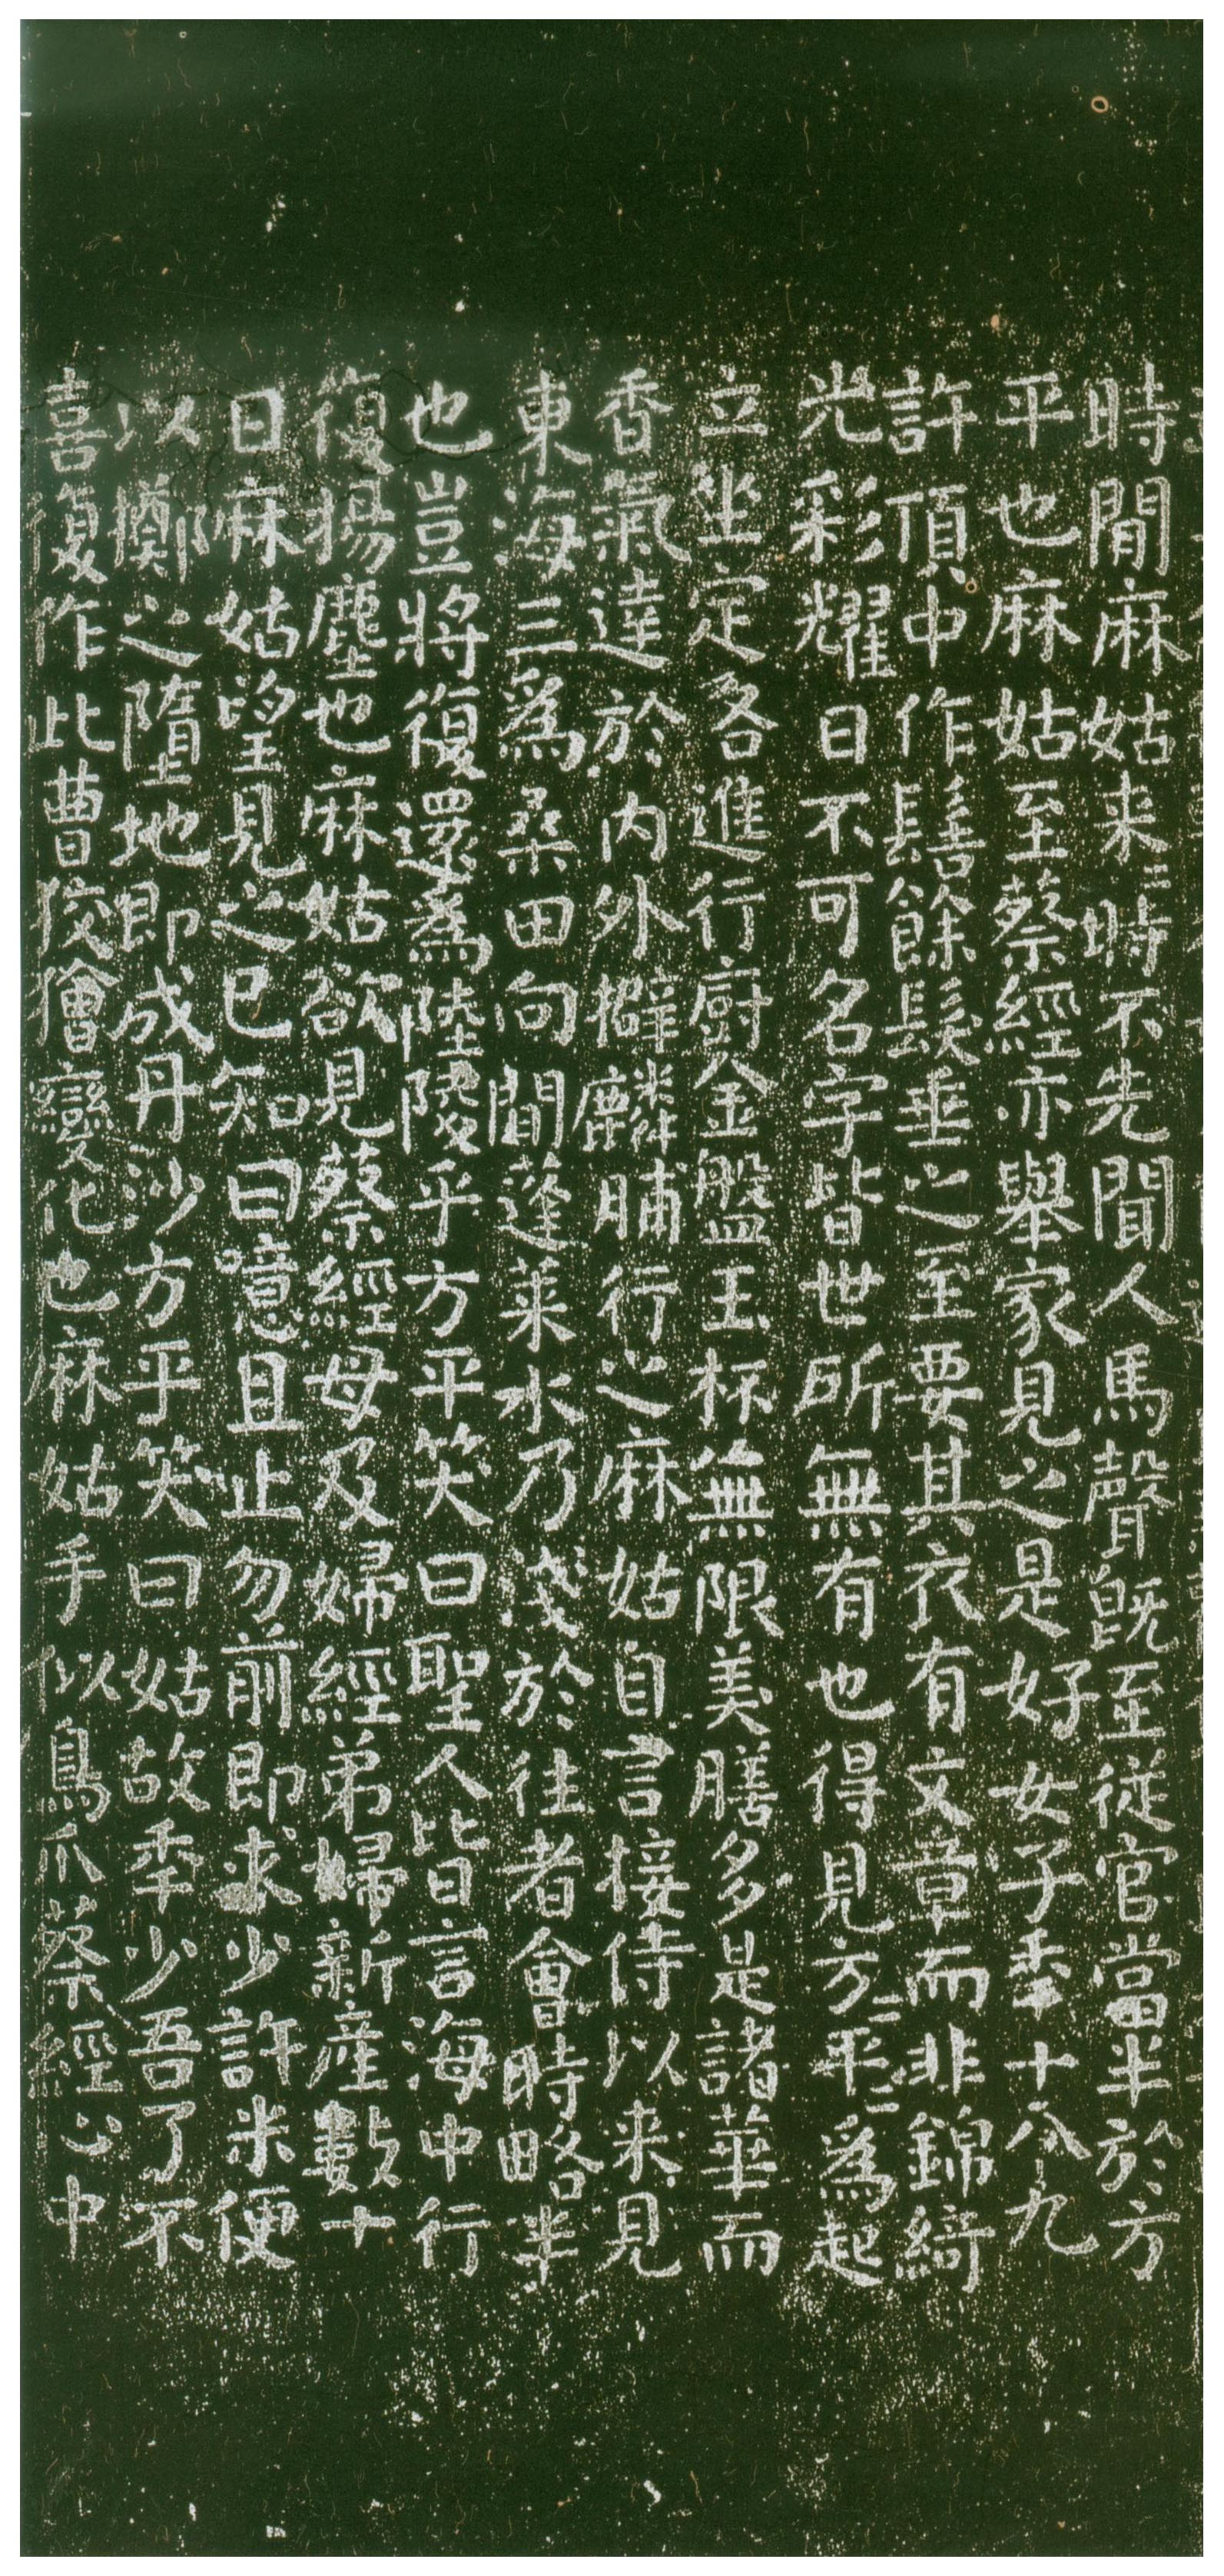 時間麻姑来〻時不先聞人馬聲既至從官當半於方
平也麻姑至蔡經亦舉家見之是好女子年十八九
許頂中作髻餘髮垂之至要其衣有文章而非錦綺
光彩耀日不可名字皆世所無有也得見方〻平〻爲起
立坐定各進行廚金盤玉杯無限美膳多是諸華而
香氣達於內外擗麟脯行之麻姑自言接侍以来見
東海三爲桑田向間蓬莱水乃淺於往者會時略半
也豈將復還爲陸陵乎方平笑曰聖人皆言海中行
復揚塵也麻姑欲見蔡經母及婦經弟婦新產數十
日麻姑望見之已知曰噫且止勿前即求少許米便
以擲之墮地即成丹沙方平笑曰姑故年少吾了不
喜復作此曹狡獪變化也麻姑手似鳥爪蔡經心中